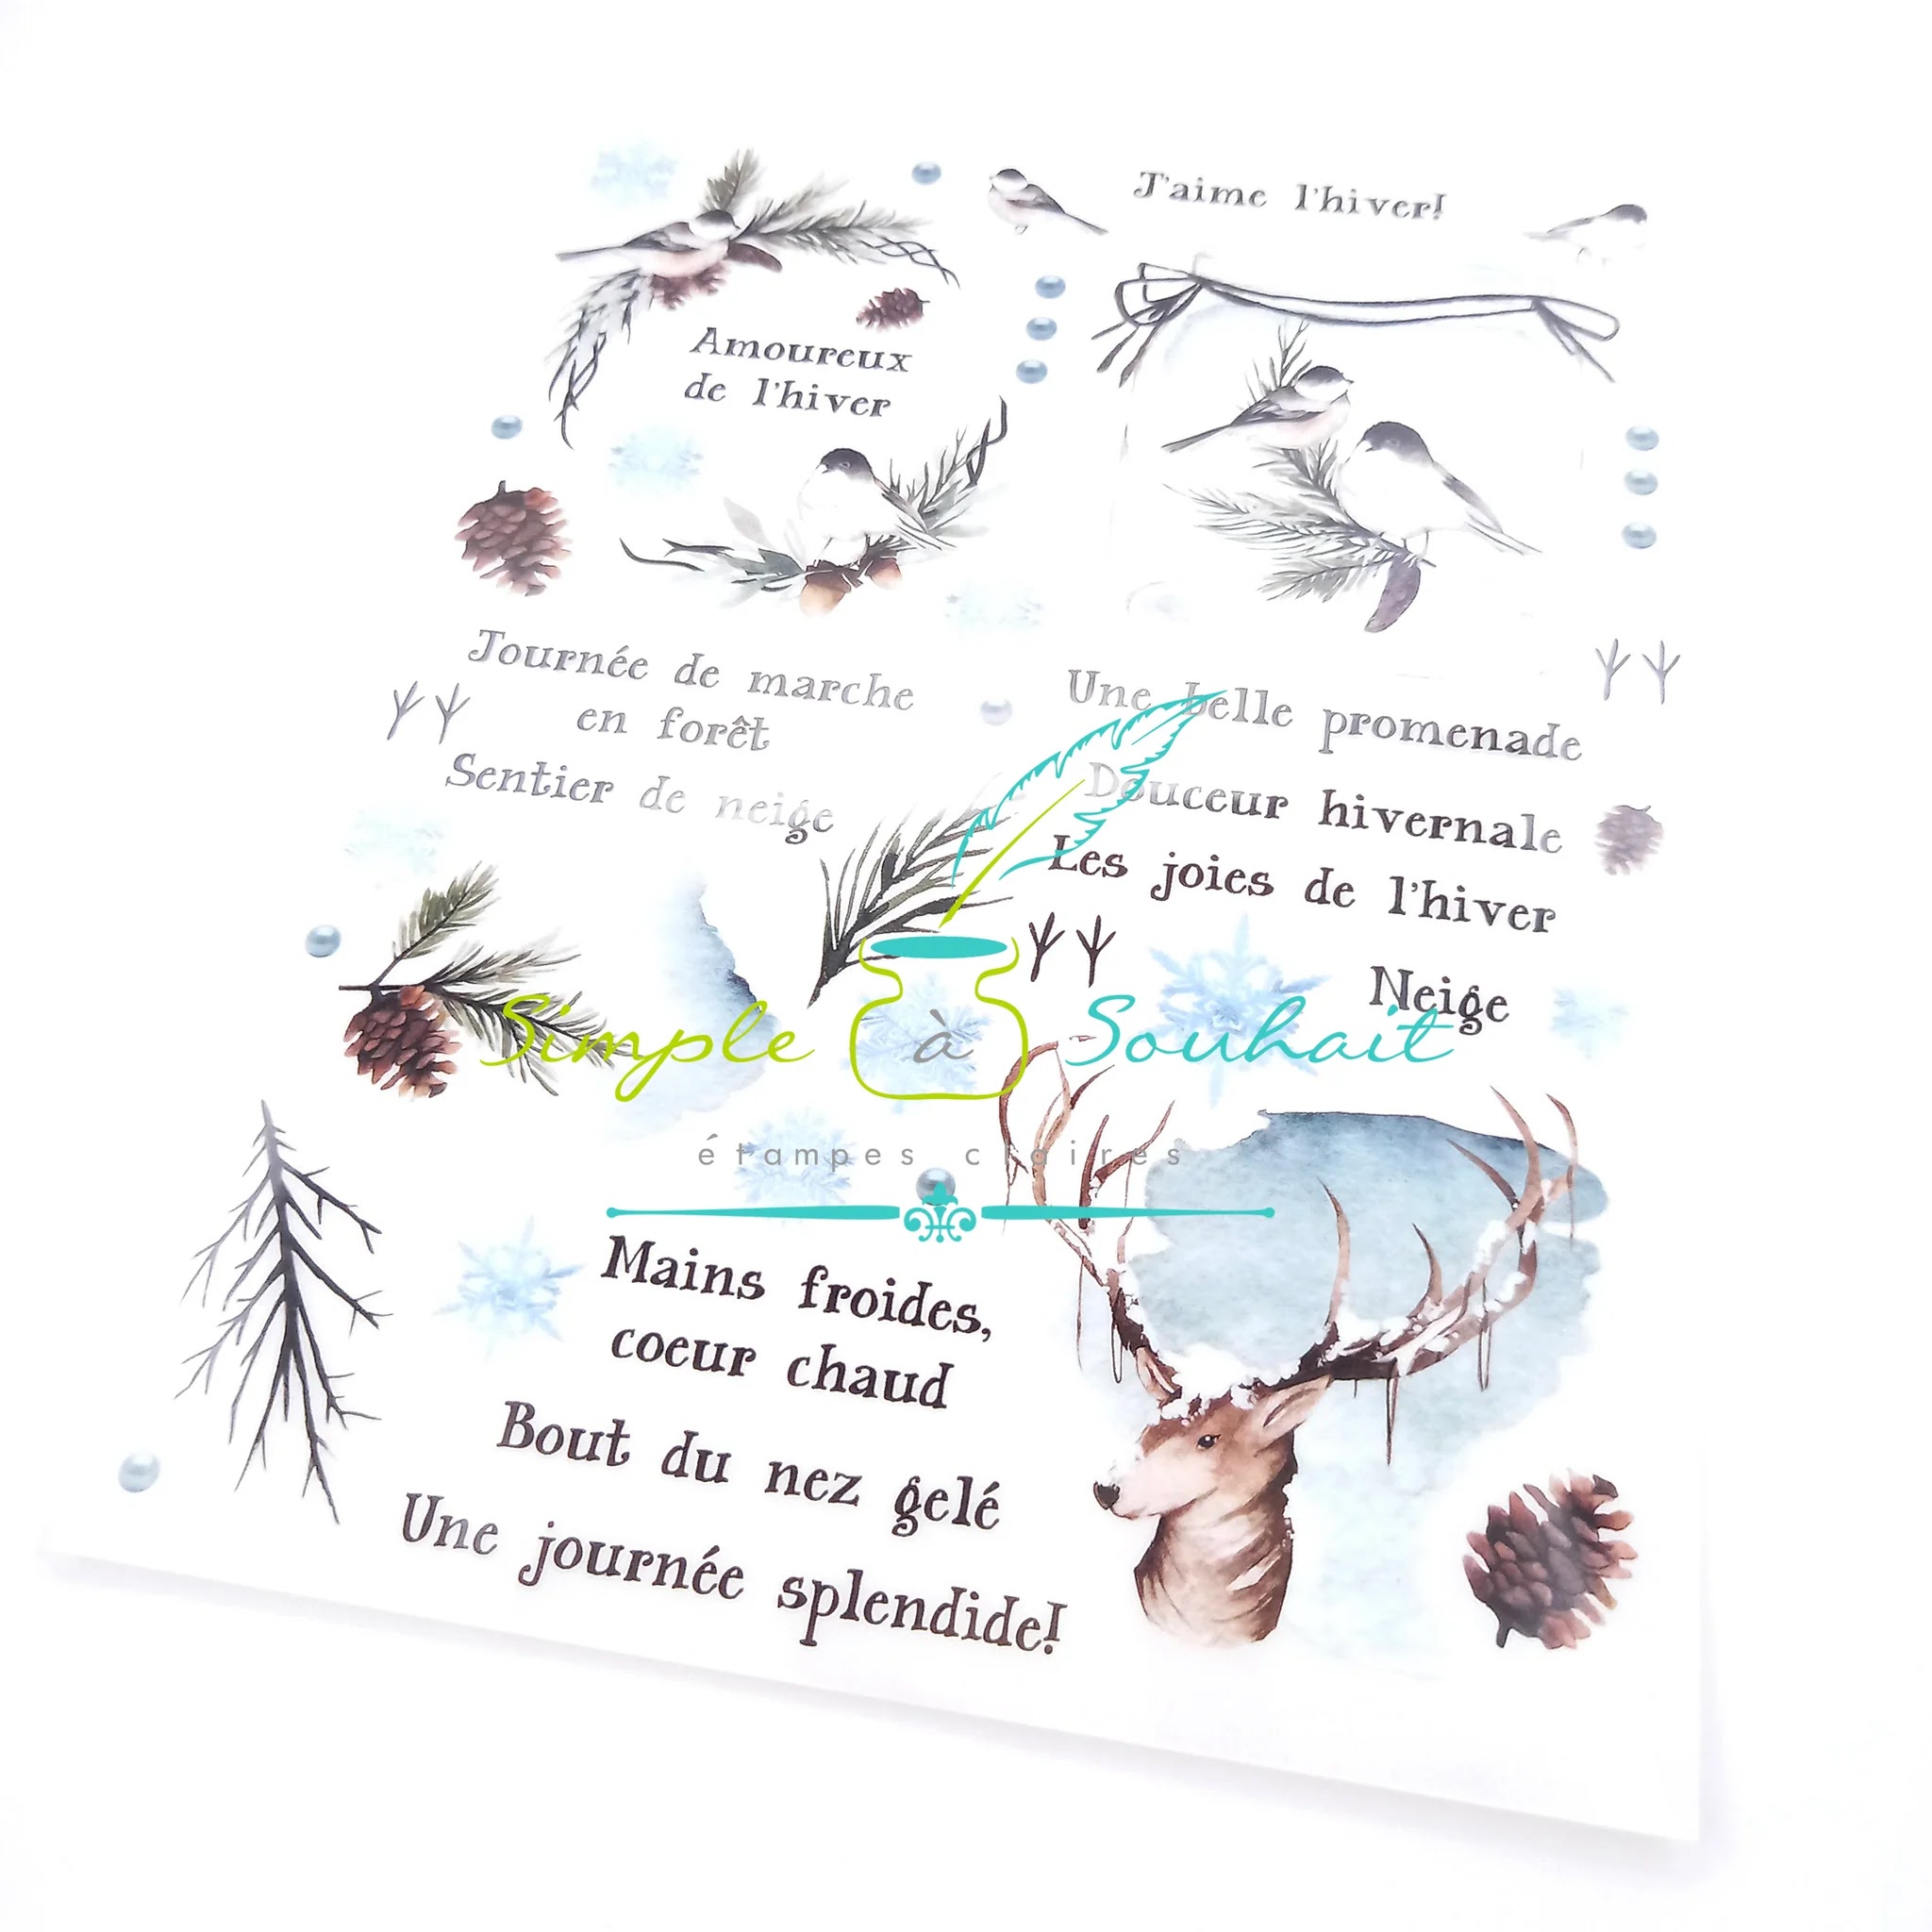 J'aime l'hiver!
Amoureux
de l'hiver
Journée de marche
en forêt
Sentier de neige
Une belle promenade
Douceur hivernale
Les joies de l'hiver
Neige
Simple à Souhait
étampes claires
Mains froides,
coeur chaud
Bout du nez gelé
Une journée splendide!